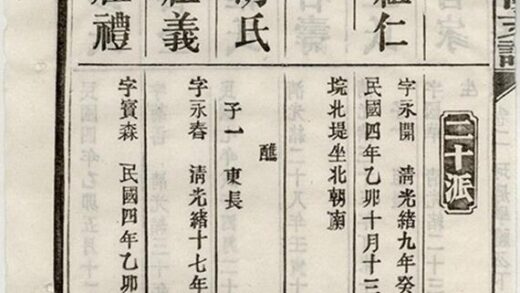 二十派
仁
字永開 清光緒九年癸
民國四年乙卯十月十三
垸北堤坐北朝南
氏
醮
子一 東長
義
字永春 清光緒十七年
禮
字賓森 民國四年乙卯